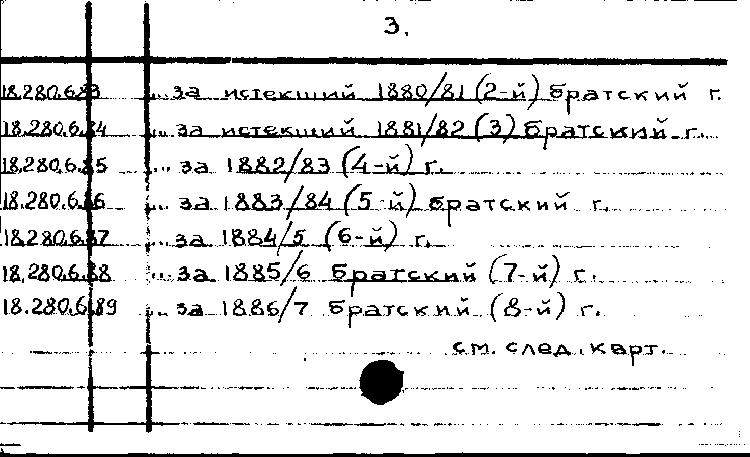 3.
18.280.6.83 ... за истекший 1880/81 (2-й) братский г.
18.280.6.84 ... за истекший 1881/82 (3) братский г.
18.280.6.85 ... за 1882/83 (4-й) г.
18.280.6.86 ... за 1883/84 (5-й) братский г.
18.280.6.87 ... за 1884/5 (6-й) г.
18.280.6.88 ... за 1885/6 братский (7-й) г.
18.280.6.89 ... за 1886/7 братский (8-й) г.
см. след. карт.